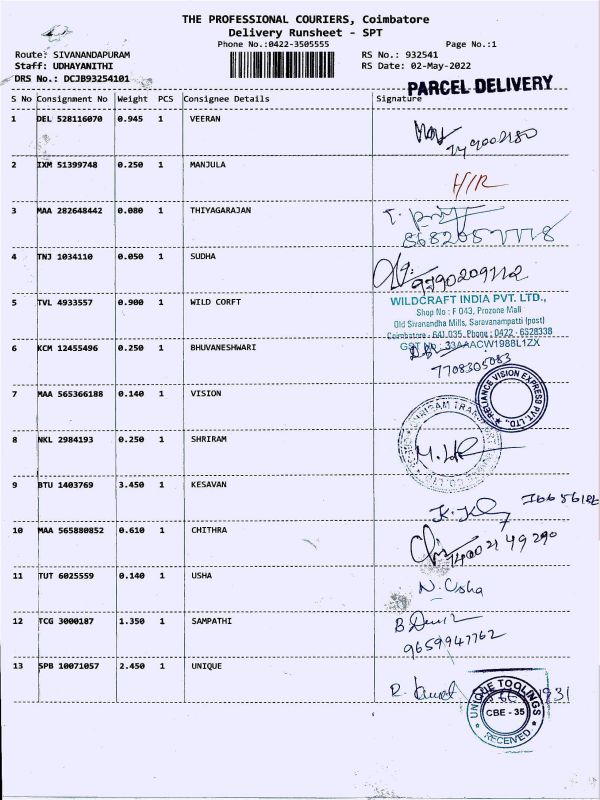 THE PROFESSIONAL COURIERS, Coimbatore
Delivery Runsheet - SPT
Phone No.:0422-3505555 Page No.:1
Route: SIVANANDAPURAM RS No.: 932541
Staff: UDHAYANITHI RS Date: 02-May-2022
DRS No.: DCJB93254101
PARCEL DELIVERY
S No Consignment No Weight PCS Consignee Details Signature
1 DEL 528116070 0.945 1 VEERAN
2 IXM 51399748 0.250 1 MANJULA H/R
3 MAA 282648442 0.080 1 THIYAGARAJAN
4 TNJ 1034110 0.050 1 SUDHA
5 TVL 4933557 0.900 1 WILD CORFT
WILDCRAFT INDIA PVT. LTD.,
Shop No : F 043, Prozone Mall
Old Sivanandha Mills, Saravanampatti (post)
Coimbatore - 641 035. Phone : 0422 - 6528338
GST No : 33AAACW1988L1ZX
6 KCM 12455496 0.250 1 BHUVANESHWARI
7708305083
7 MAA 565366188 0.140 1 VISION
RELIANCE VISION EXPRESS PVT. LTD.,
8 NKL 2984193 0.250 1 SHRIRAM
9 BTU 1403769 3.450 1 KESAVAN
10 MAA 565880852 0.610 1 CHITHRA
11 TUT 6025559 0.140 1 USHA
N. Usha
12 TCG 3000187 1.350 1 SAMPATHI
9659947762
13 SPB 10071057 2.450 1 UNIQUE
UNIQUE TOOLINGS
CBE - 35
RECEIVED